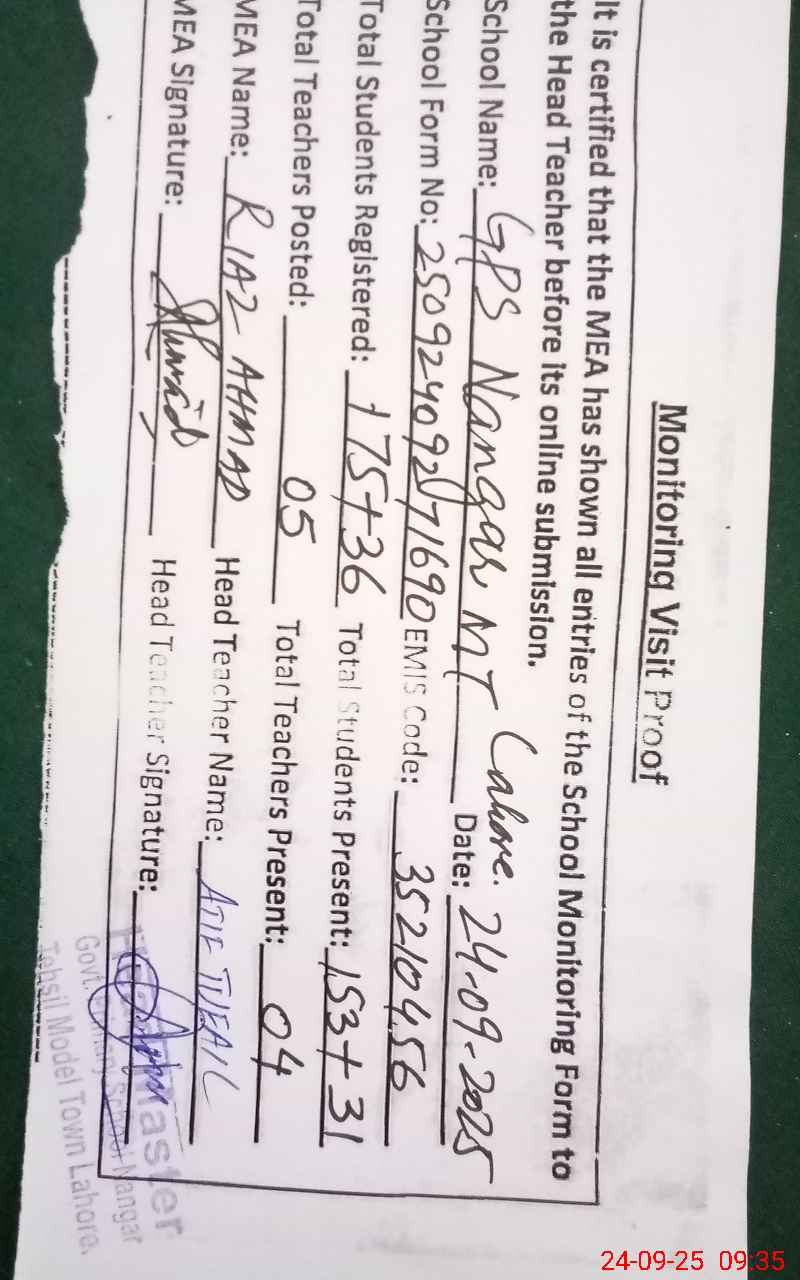 Monitoring Visit Proof
It is certified that the MEA has shown all entries of the School Monitoring Form to
the Head Teacher before its online submission.
School Name: GPS Nangar MT Lahore. Date: 24-09-2025
School Form No: 25092409271690 EMIS Code: 35210456
Total Students Registered: 175+36 Total Students Present: 153+31
Total Teachers Posted: 05 Total Teachers Present: 04
MEA Name: RIAZ AHMAD Head Teacher Name: ATIF TUFAIL
MEA Signature: Head Teacher Signature:
Master
Govt. Primary School Nangar
Tehsil Model Town Lahore.
24-09-25 09:35